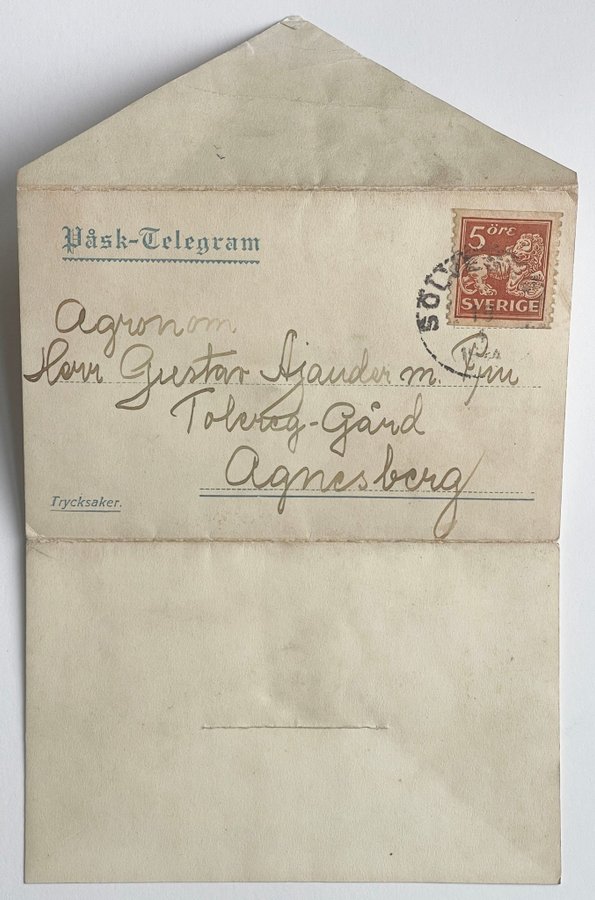 Påsk-Telegram
5 öre
SVERIGE
Agronom
Herr Gustav Ajander m. Fru
Tolereg-Gård
Agnesberg
Trycksaker.